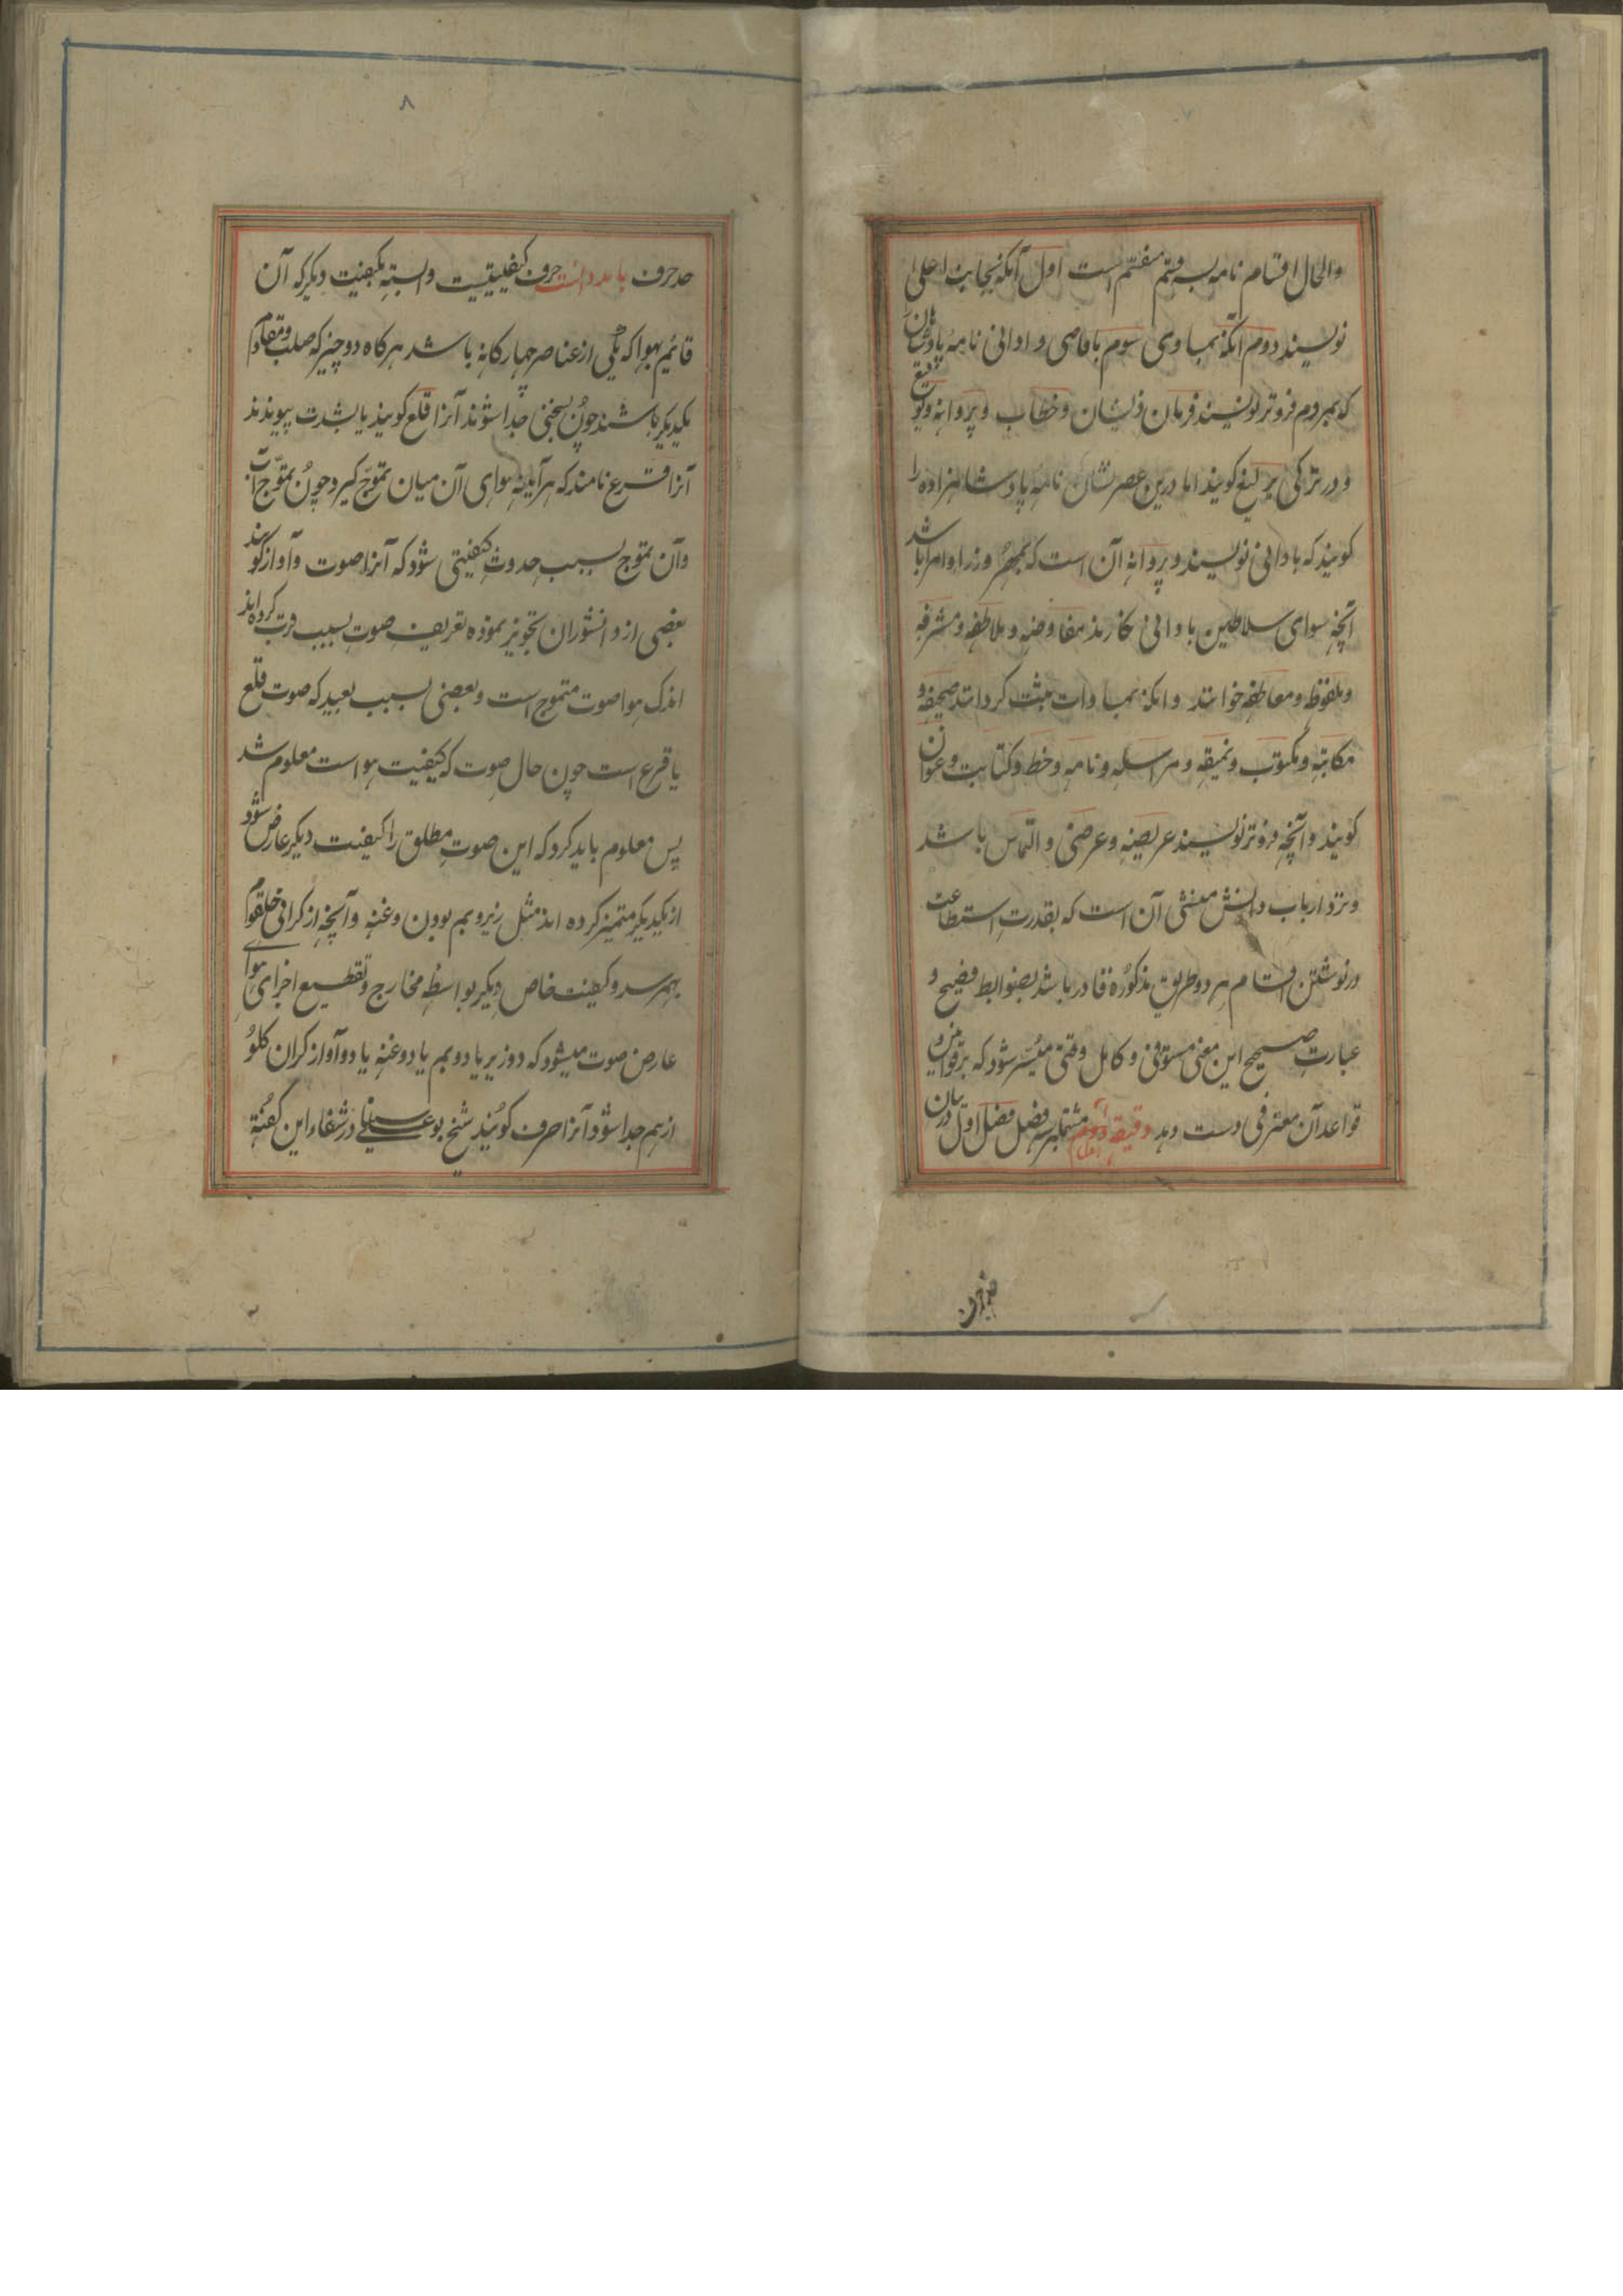 والحال اقسام نامه بسه قسم منقسم است اول آنکه بجانب اعلی
نویسند دوم آنکه بمساوی سوم باقاصی و ادانی نامه پادشاهان
که بمردم فروتر نویسند فرمان ذیشان و خطاب و پروانه و توقیع
و در ترکی یرلیغ کویند اما درین عصر نشان نامه پادشاهزاده را
کویند که بادانی نویسند و پروانه آن است که بمهر وزرا و امرا باشد
آنچه سوای سلاطین بادانی نکارند مفاوضه و ملاطفه و مشرفه
و ملفوظ و معاطفه خوانند و آنکه بمساوات مثبت کردانند صحیفه و
مکاتبه و مکتوب و نمیقه و مراسله و نامه و خط و کتابت و عنوان
کویند و آنچه فروتر نویسند عریضه و عرضی و التماس باشد
و نزد ارباب دانش منشی آن است که بقدرت استطاعت
در نوشتن اقسام هر دو طریق مذکوره قادر باشد بضوابط فصیح و
عبارت صحیح این معنی مستوفی و کامل وقتی میسر شود که بر قوانین و
قواعد آن معترفی دست دهد دقیقه دوم مشتملبر سه فصل فصل اول در بیان
حد حرف
۸
حد حرف باید دانست حرف کیفیتیست وابسته بکیفیت دیکر که آن
قائم بهوا که یکی از عناصر چهارکانه باشد هرکاه دو چیز که صلب و مقاوم
یکدیکر باشند چون بسختی جدا شوند آنرا قلع کویند یا بشدت پیوندند
آنرا قرع نامند که هرآینه هوای آن میان تموج کیرد چون تموج آب
و آن تموج بسبب حدوث کیفیتی شود که آنرا صوت و آواز کویند
بعضی از دانشوران تجویز نموده تعریف صوت بسبب قرب کرده اند
اندک هوا صوت متموج است و بعضی بسبب بعید که صوت قلع
یا قرع است چون حال صوت که کیفیت هواست معلوم شد
پس معلوم باید کرد که این صوت مطلق را کیفیت دیکر عارض شود
از یکدیکر متمیز کرده اند مثل زیر و بم بودن و غنه و آنچه از کرانی حلقوم
بهم رسد و کیفیت خاص دیکر بواسطه مخارج و تقطیع اجزای هوای
عارض صوت میشود که دو زیر یا دو بم یا دو غنه یا دو آواز کران کلو
از هم جدا شود آنرا حرف کویند شیخ بوعلی سینا در شفاء این کفته